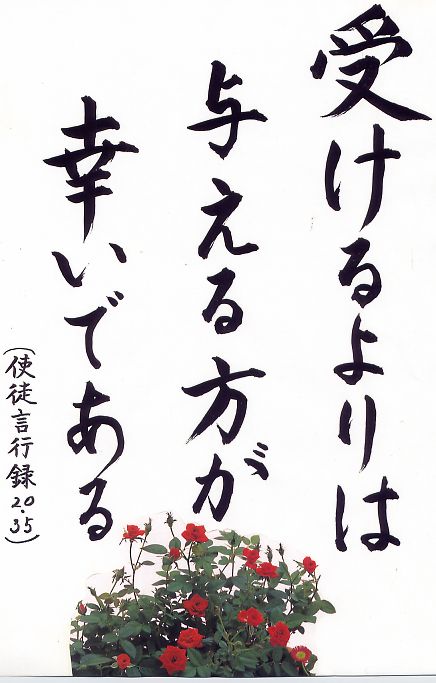 受けるよりは
与える方が
幸いである
(使徒言行録20.35)